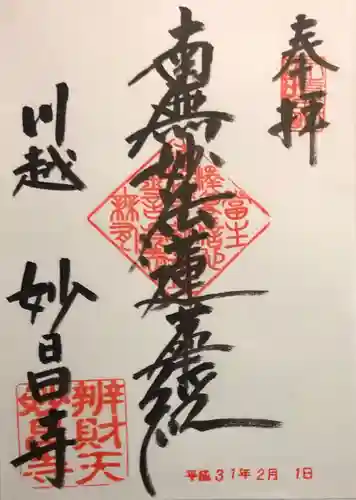 奉拝
南無妙法蓮華経
川越
妙昌寺
辨財天
妙昌寺
平成31年2月 1日